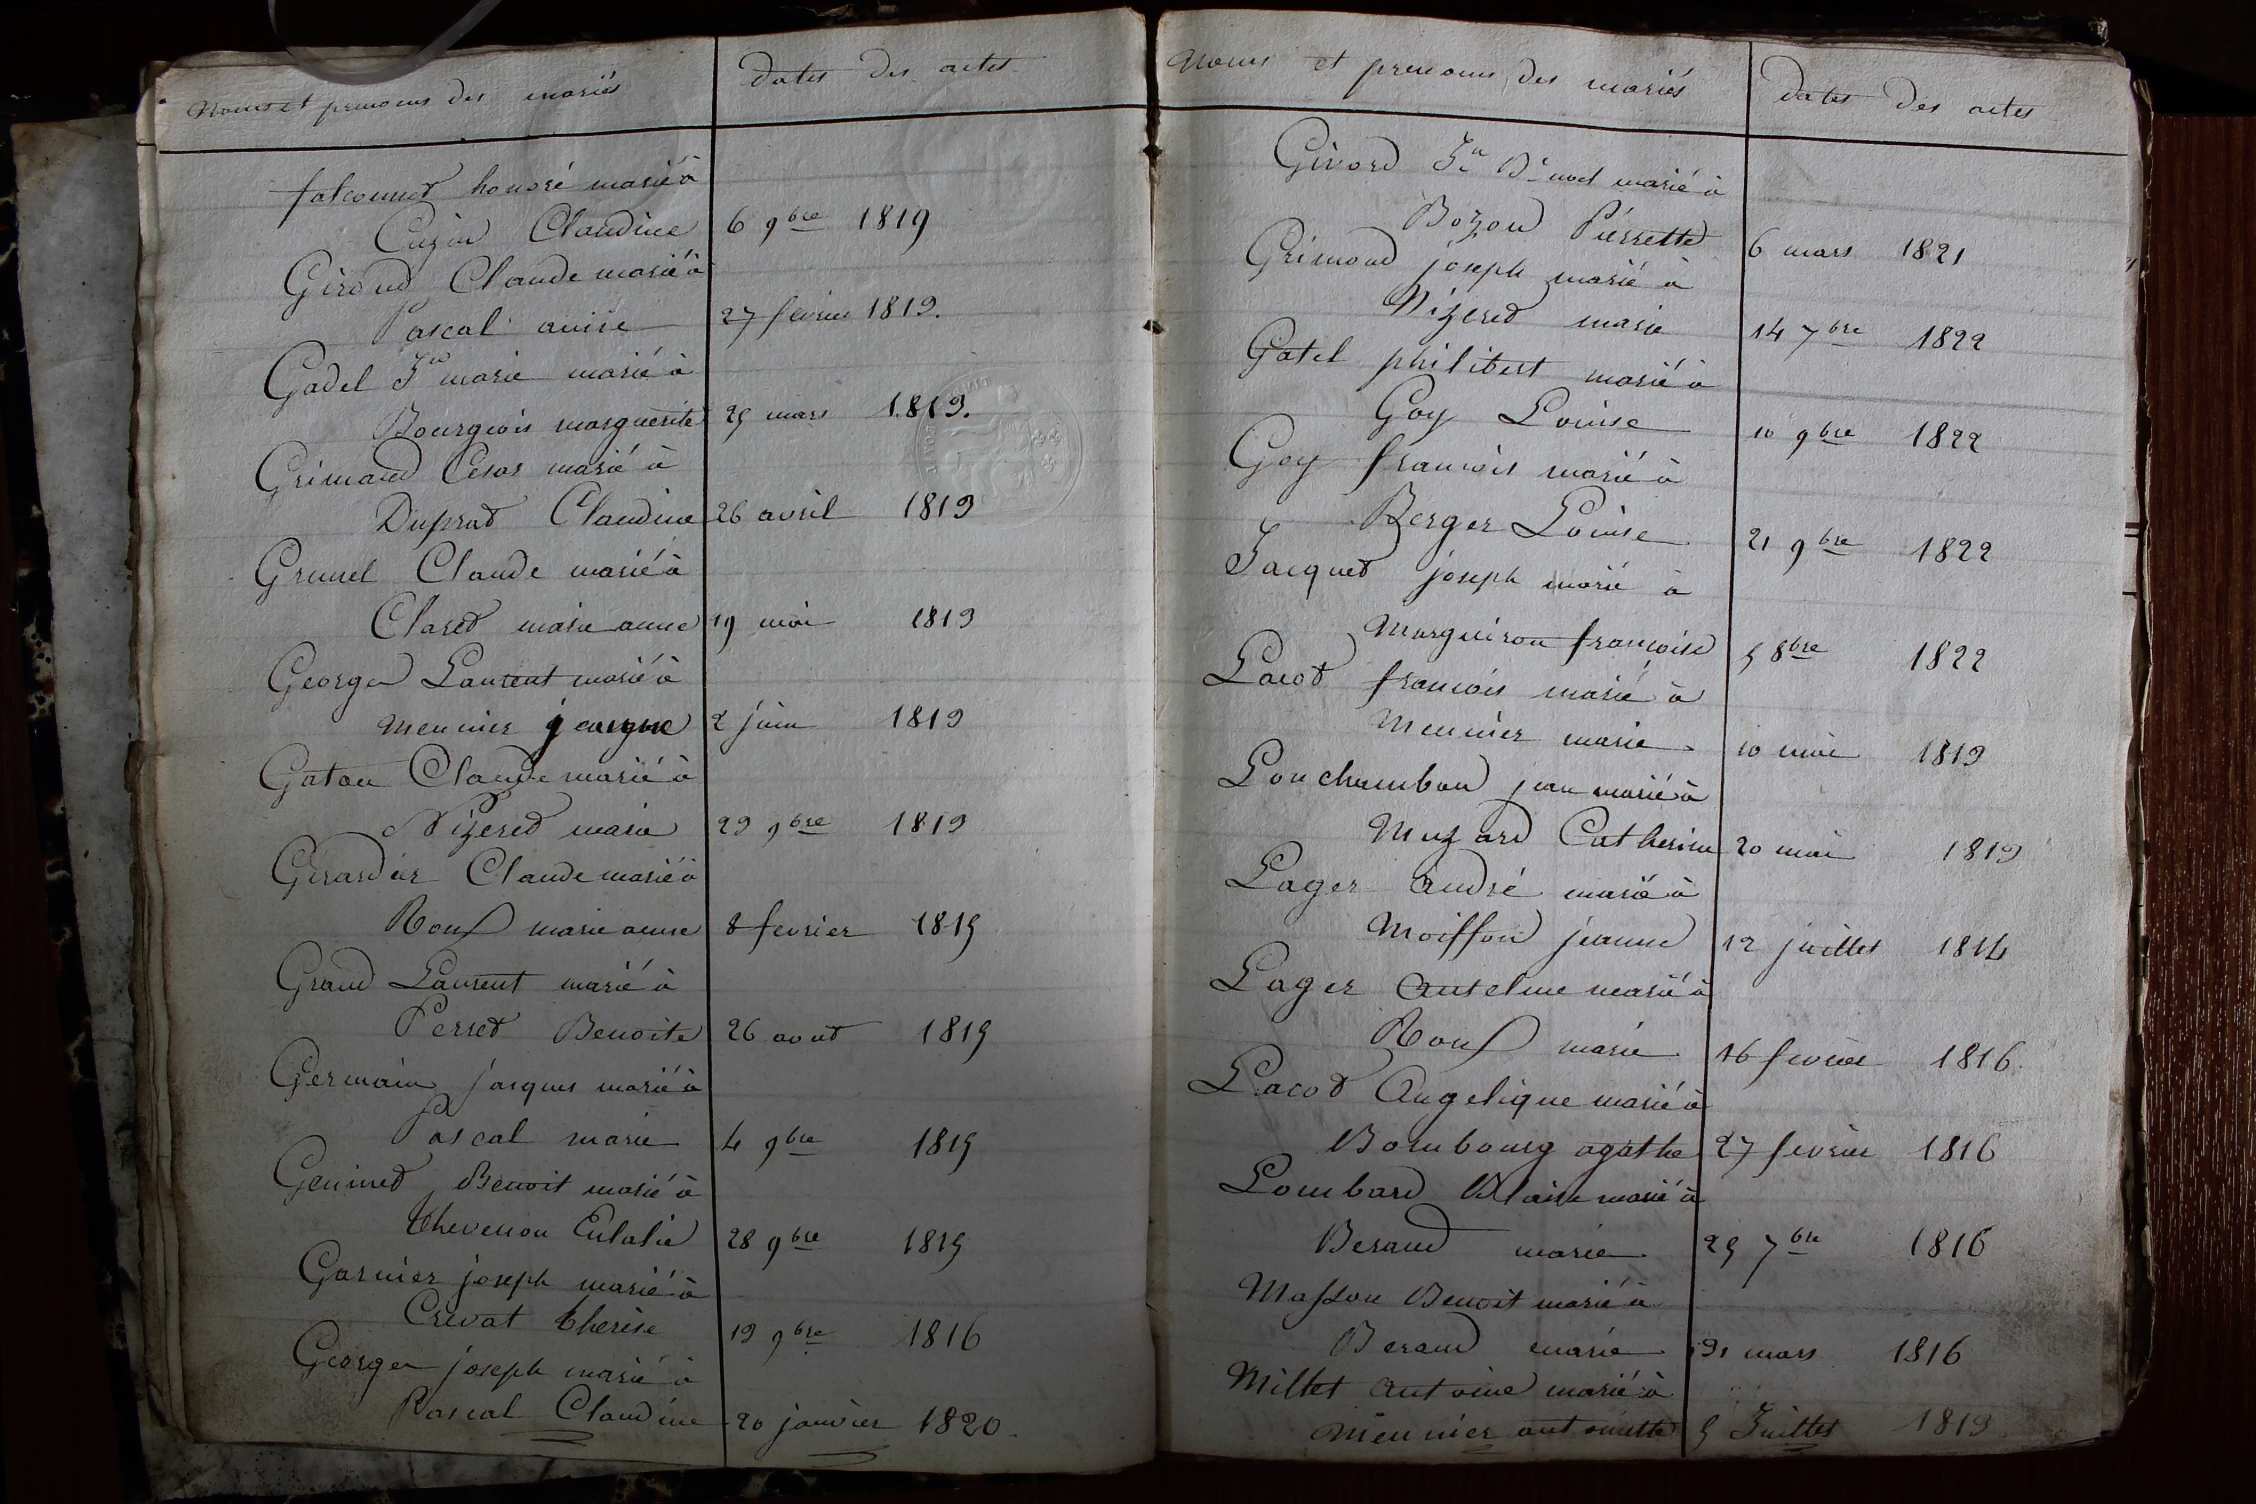 Noms et prenoms des mariés
dates des actes
falconnet honoré marié à
Cuzin Claudine 6 9bre 1819
Giroud Claude marié à
Pascal anne 27 fevrier 1819.
Gadel Jn marie marié à
Bourgeois marguerite 25 mars 1819.
Grimaud Cesar marié à
Duprat Claudine 26 avril 1819
Grunel Claude marié à
Claret marie anne 19 mai 1819
George Laurent marié à
Meunier 2 juin 1819
Gaton Claude marié à
Nizeret marie 29 9bre 1819
Girardier Claude marié à
Rouf marie anne 8 fevrier 1815
Grand Laurent marié à
Perret Benoite 26 aout 1815
Germain jacques marié à
Pascal marie 4 9bre 1815
Geninet Benoit marié à
thevenon Eulalie 28 9bre 1815
Garnier joseph marié à
Crevat therese 19 9bre 1816
George joseph marié à
Pascal Claudine 20 janvier 1820.
Noms et prenoms des mariés
dates des actes
Givord Jn marié à
Bozon Pierrette 6 mars 1821
Grimoud joseph marié à
Nizeret marie 14 7bre 1822
Gatel philibert marié à
Goy Louise 10 9bre 1822
Goy francois marié à
Berger Louise 21 9bre 1822
Jacquet joseph marié à
Marguiron francoise 5 8bre 1822
Lacot francois marié à
Meunier marie 10 mai 1819
Lonchambon jean marié à
Muzard Catherine 20 mai 1819
Lager andré marié à
Moisson jeanne 12 juillet 1814
Lager anselme marié à
Rouf marie 16 fevrier 1816.
Lacot Angelique marié à
Bombourg agathe 27 fevrier 1816
Lombard Blaise marié à
Beraud marie 25 7bre 1816
Masson Benoit marié à
Beraud marie 31 mars 1816
Millet antoine marié à
Meunier antoinette 5 Juillet 1819